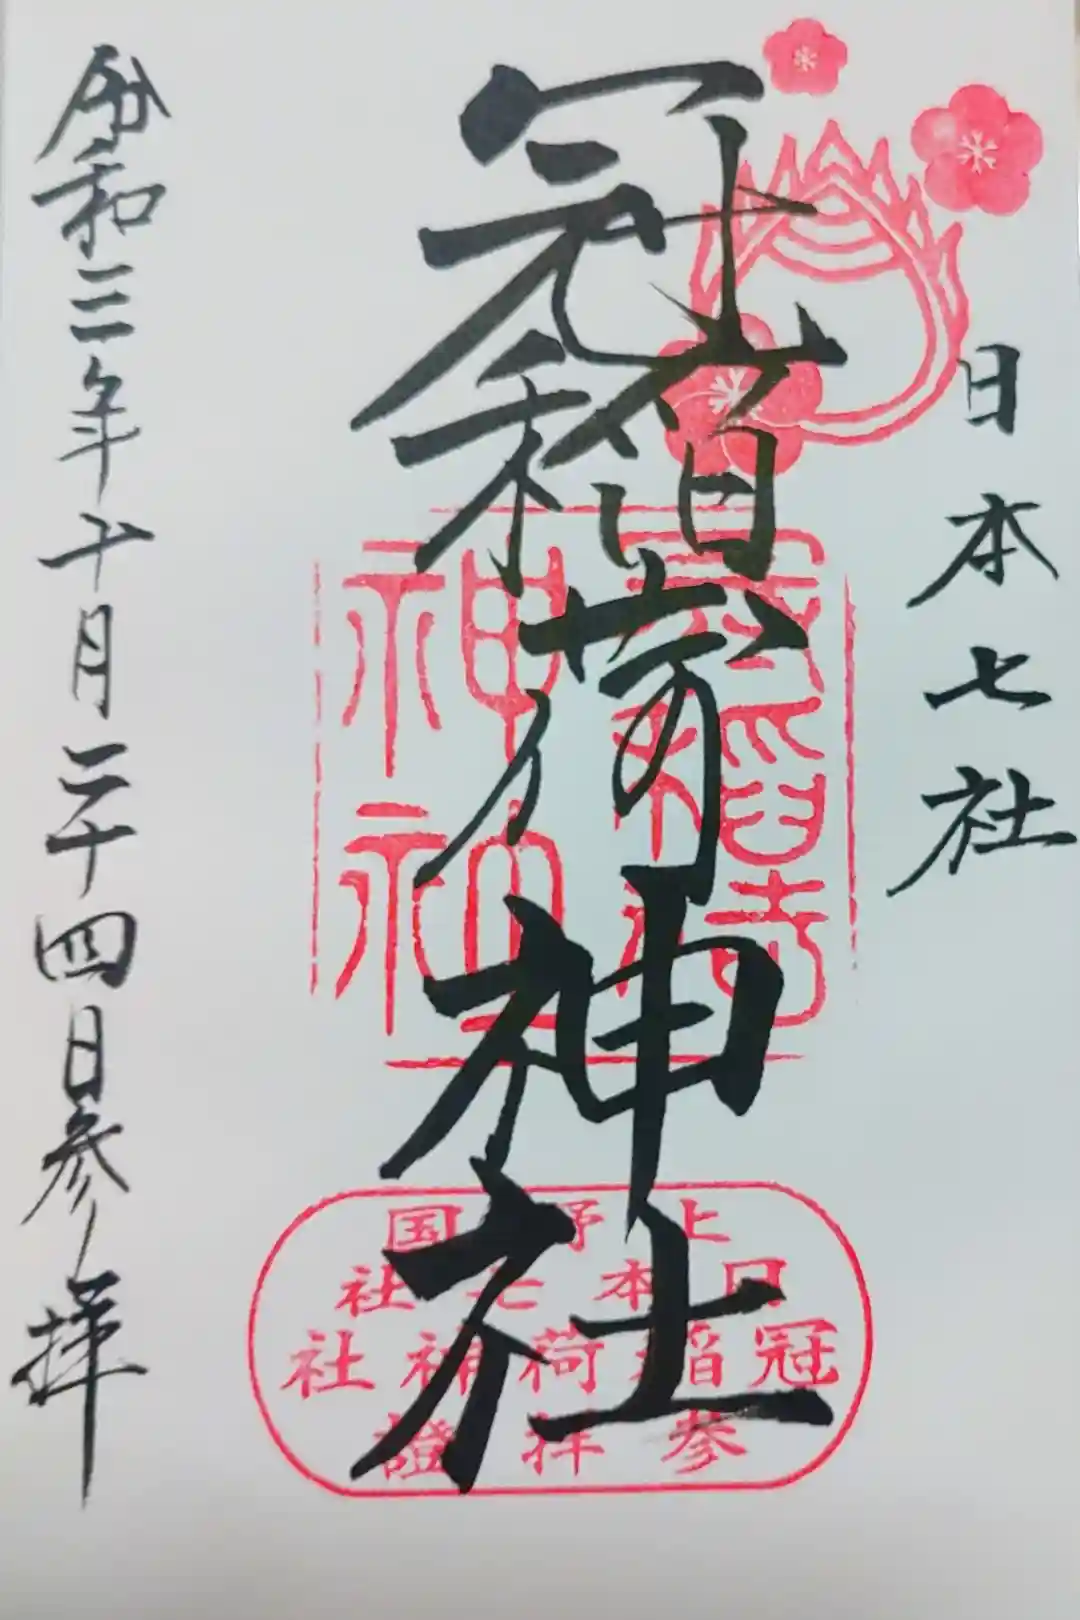 日本七社
冠稲荷神社
令和三年十月二十四日参拝
冠稲荷
神社
上野国
日本七社
冠稲荷神社
参拝證